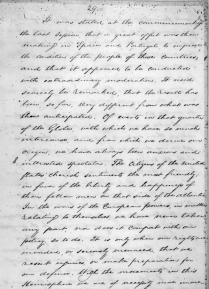 It was stated at the commencement of
the last session that a great effort was then
making in Spain and Portugal to improve
the condition of the people of those countries,
and that it appeared to be conducted
with extraordinary moderation. It need
scarcely be remarked, that the result has
been so far, very different from what was
then anticipated. Of events in that quarter
of the Globe, with which we have so much
intercourse and from which we derive our
origin, we have always been anxious and
interested spectators. The citizens of the United
States cherish sentiments the most friendly,
in favor of the liberty and happiness of
their fellow men on that side of the Atlantic.
In the wars of the European powers, in matters
relating to themselves, we have never taken
any part, nor does it comport with our
policy, so to do. It is only when our rights are
invaded, or seriously menaced, that we
resent injuries, or make preparation for
our defence. With the movements in this
Hemisphere we are of necessity more